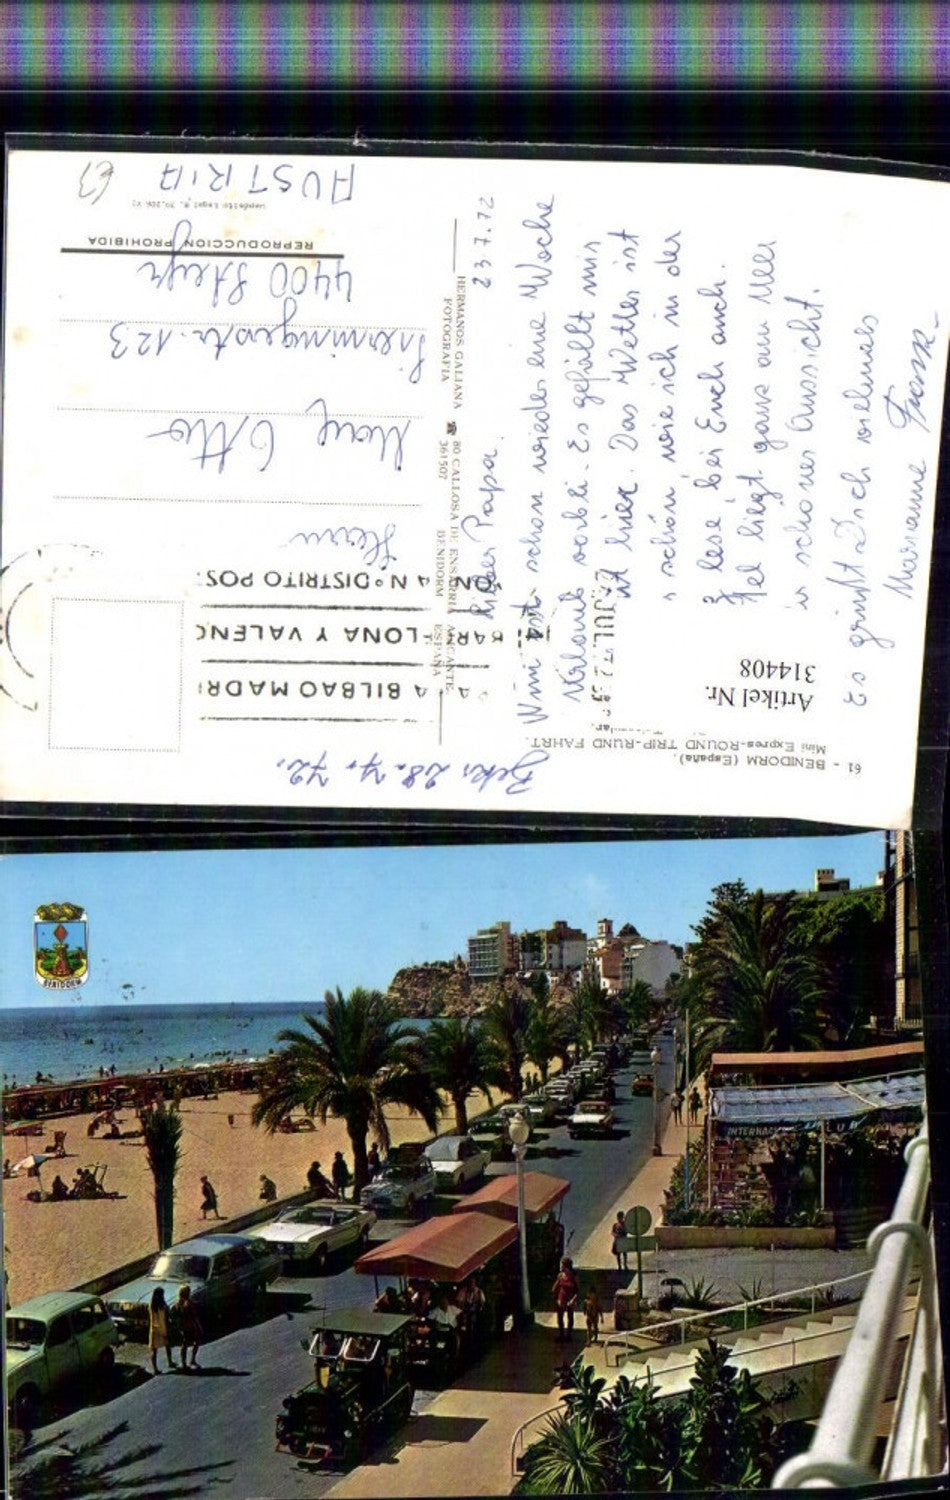 61 - BENIDORM (España).
Mini Expres-ROUND TRIP-RUND FAHRT.
Artikel Nr.
314408
Bek. 28. 7. 72.
23.7.72
Lieber Papa.
schon wieder eine Woche
Urlaub vorbei. Es gefällt mir
gut hier. Das Wetter ist
schön, wie ich in der
lese bei Euch auch.
liegt ganz am Meer
schöner Aussicht.
Es grüßt Dich vielmals
Marianne Franz
HERMANOS GALIANA ☎ 80 CALLOSA DE ENSARRIA ALICANTE
FOTOGRAFIA 361507 BENIDORM ESPAÑA
A BILBAO MADRI
BAR LONA Y VALENC
N° DISTRITO POS
JUL
Herrn
Otto
123
4400 Steyr
REPRODUCCION PROHIBIDA
Deposito Legal B.
AUSTRIA
BENIDORM
INTERNA CLUB